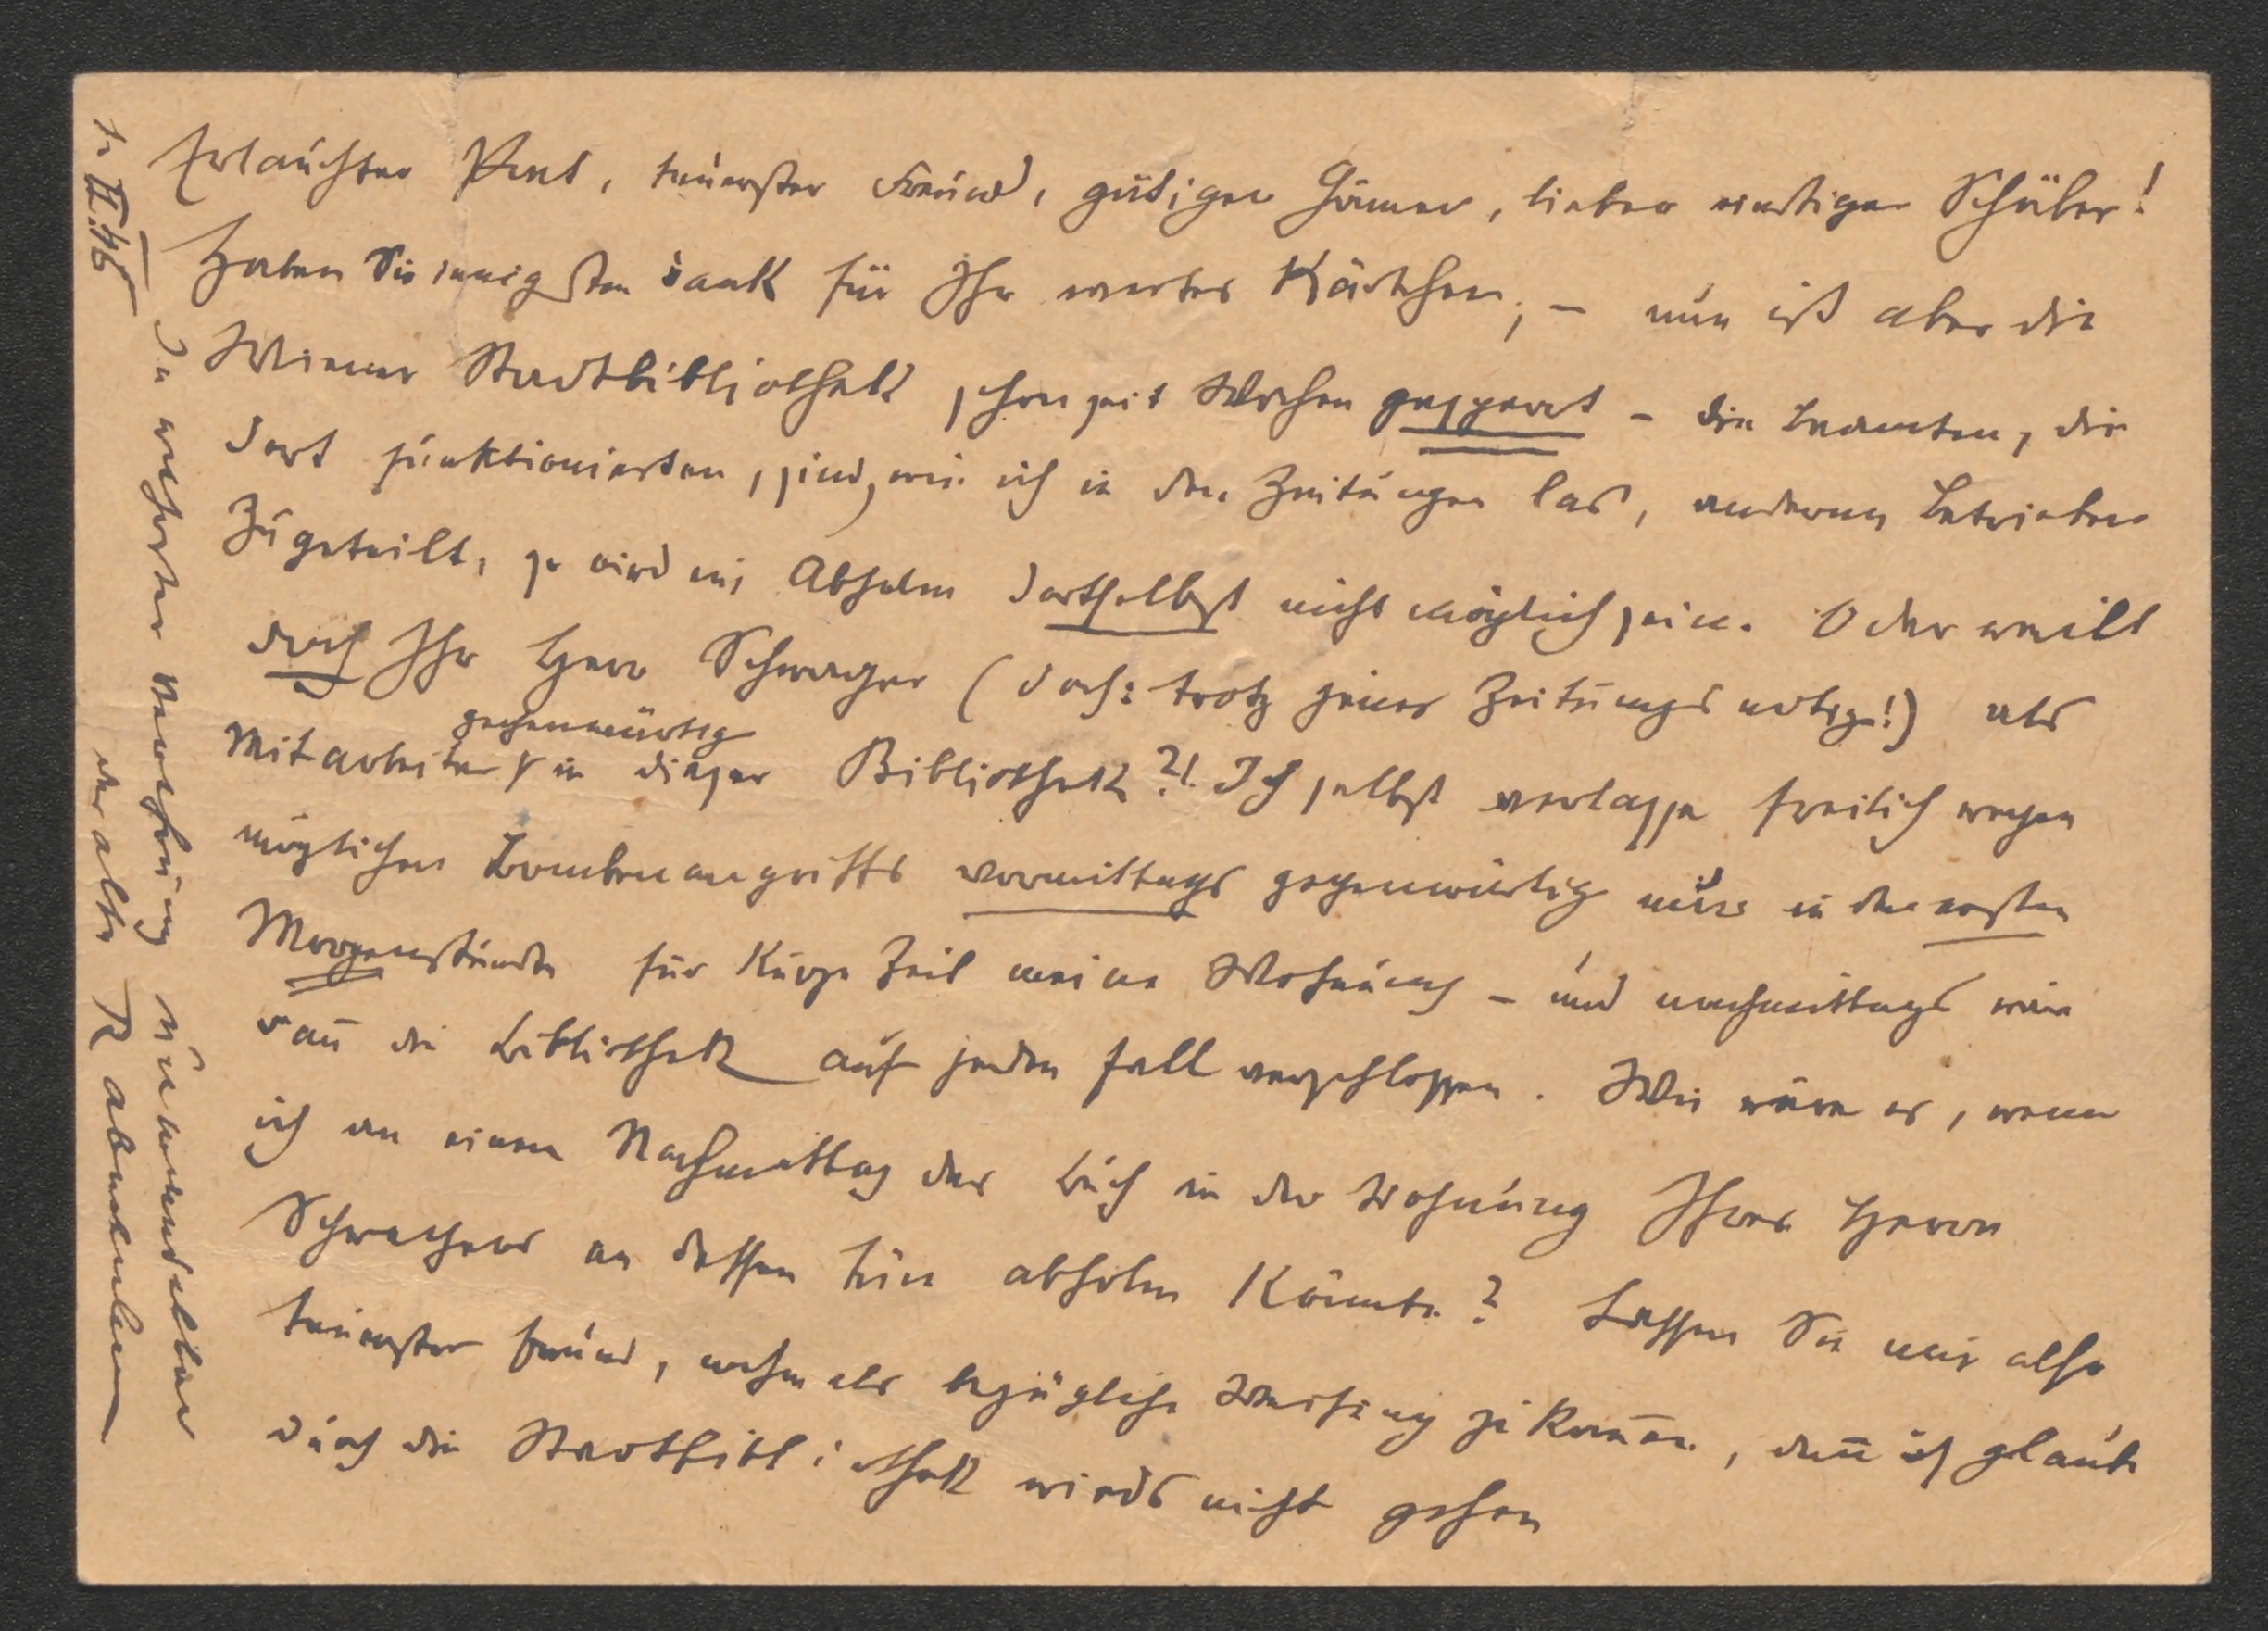 Erlauchter Poet, teuerster Freund, gütiger Gönner, lieber einstiger Schüler!
Haben Sie innigsten Dank für Ihr wertes Kärtchen; – nun ist aber die
Wiener Stadtbibliothek schon seit Wochen gesperrt – die Beamten, die
dort funktionierten, sind, wie ich in den Zeitungen las, anderen Betrieben
zugeteilt, so wird ein Abholen dortselbst nicht möglich sein. Oder weilt
doch Ihr Herr Schwager (doch: trotz jener Zeitungsnotiz!) als
gegenwärtig
Mitarbeiter in dieser Bibliothek?! Ich selbst verlasse freilich wegen
möglichen Bombenangriffs vormittags gegenwärtig nur in den ersten
Morgenstunden für kurze Zeit meine Wohnung – und nachmittags wäre
dañ die Bibliothek auf jeden Fall verschlossen. Wie wäre es, wenn
ich an einem Nachmittag das Buch in der Wohnung Ihres Herrn
Schwagers an dessen Türe abholen könnte? Lassen Sie mir also
teuerster Freund, nochmals bezügliche Weisung zukom̄en, deñ ich glaube
durch die Stadtbibliothek wirds nicht gehen
In wahrster Verehrung unwandelbar
der alte Rabenlechner
1. II. 45